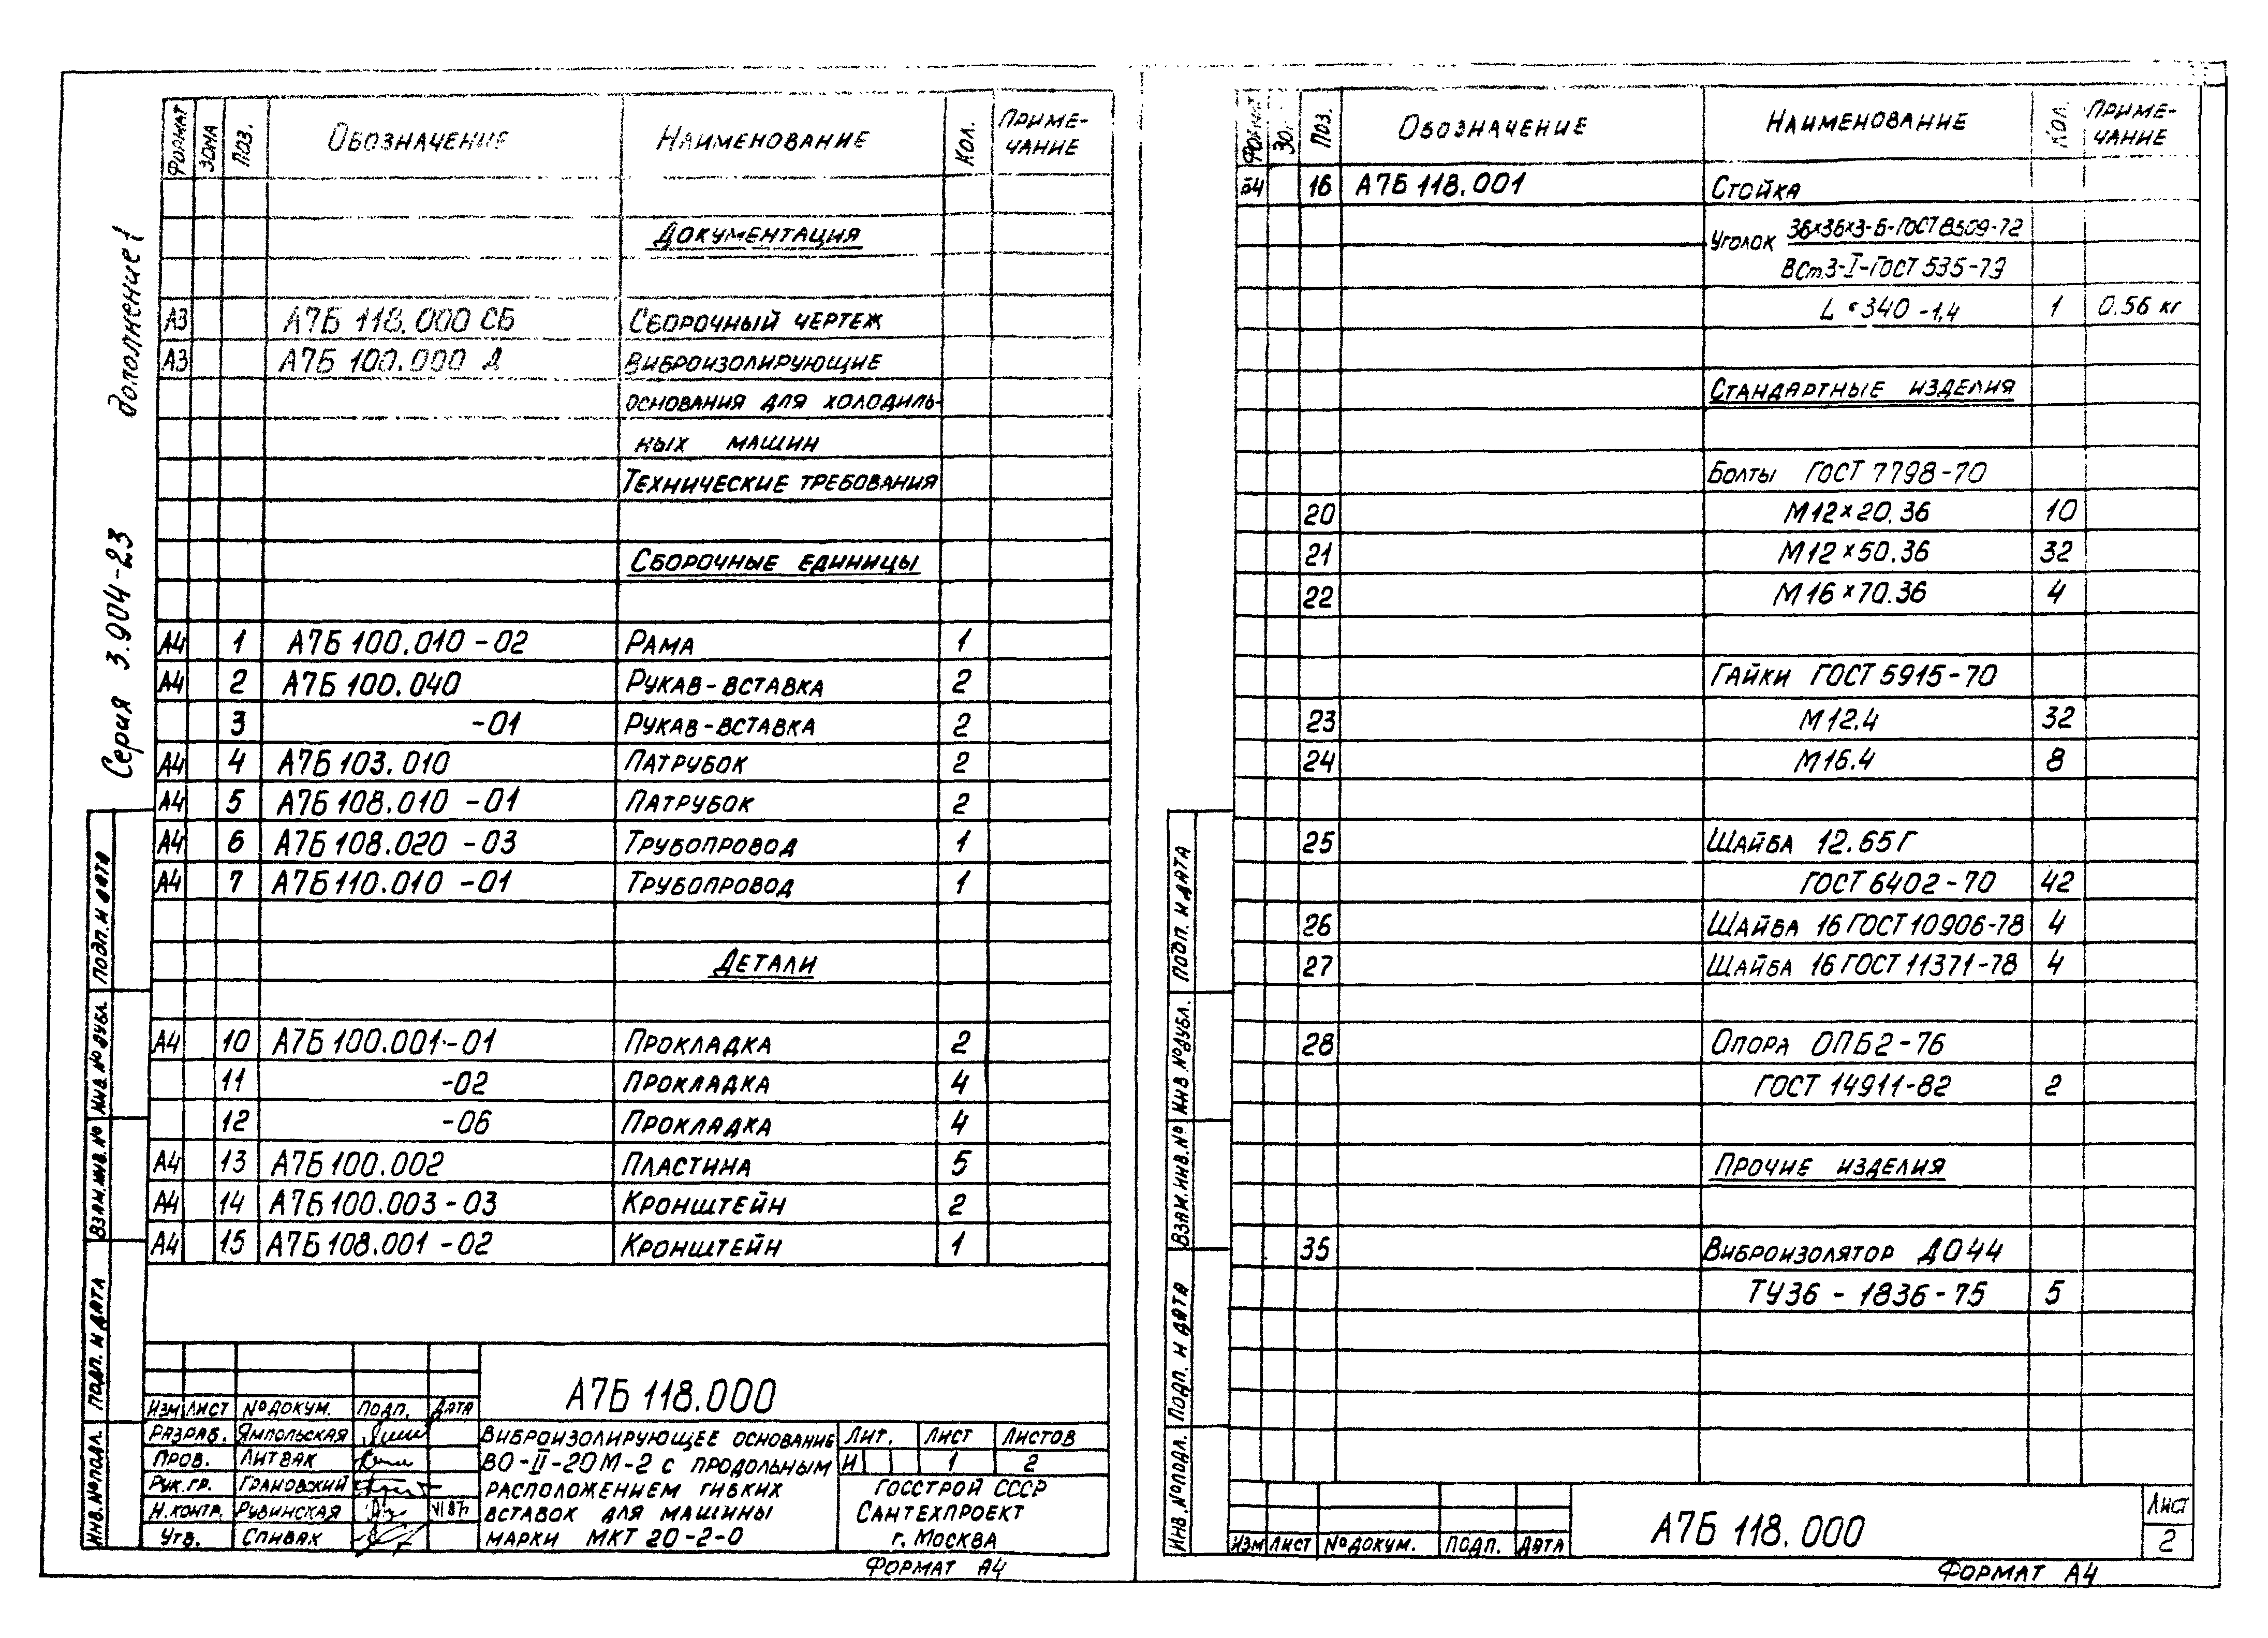 Серия 3.904-23 дополнение 1
ФОРМАТ ЗОНА ПОЗ. ОБОЗНАЧЕНИЕ НАИМЕНОВАНИЕ КОЛ. ПРИМЕ-
ЧАНИЕ
ДОКУМЕНТАЦИЯ
А3 А7Б 118.000 СБ СБОРОЧНЫЙ ЧЕРТЕЖ
А3 А7Б 100.000 Д ВИБРОИЗОЛИРУЮЩИЕ
ОСНОВАНИЯ ДЛЯ ХОЛОДИЛЬ-
НЫХ МАШИН
ТЕХНИЧЕСКИЕ ТРЕБОВАНИЯ
СБОРОЧНЫЕ ЕДИНИЦЫ
А4 1 А7Б 100.010 -02 РАМА 1
А4 2 А7Б 100.040 РУКАВ-ВСТАВКА 2
3 -01 РУКАВ-ВСТАВКА 2
А4 4 А7Б 103.010 ПАТРУБОК 2
А4 5 А7Б 108.010 -01 ПАТРУБОК 2
А4 6 А7Б 108.020 -03 ТРУБОПРОВОД 1
А4 7 А7Б 110.010 -01 ТРУБОПРОВОД 1
ДЕТАЛИ
А4 10 А7Б 100.001-01 ПРОКЛАДКА 2
11 -02 ПРОКЛАДКА 4
12 -06 ПРОКЛАДКА 4
А4 13 А7Б 100.002 ПЛАСТИНА 5
А4 14 А7Б 100.003-03 КРОНШТЕЙН 2
А4 15 А7Б 108.001 -02 КРОНШТЕЙН 1
ИНВ.№ПОДЛ. ПОДП. И ДАТА ВЗАМ.ИНВ.№ ИНВ.№ДУБЛ. ПОДП. И ДАТА
А7Б 118.000
ИЗМ ЛИСТ №ДОКУМ. ПОДП. ДАТА
РАЗРАБ. ЯМПОЛЬСКАЯ
ПРОВ. ЛИТВАК
РУК.ГР. ГРАНОВСКИЙ
Н.КОНТР. РУБИНСКАЯ
УТВ. СПИВАК
ВИБРОИЗОЛИРУЮЩЕЕ ОСНОВАНИЕ
ВО-II-20М-2 С ПРОДОЛЬНЫМ
РАСПОЛОЖЕНИЕМ ГИБКИХ
ВСТАВОК ДЛЯ МАШИНЫ
МАРКИ МКТ 20-2-0
ЛИТ. ЛИСТ ЛИСТОВ
И 1 2
ГОССТРОЙ СССР
САНТЕХПРОЕКТ
г. МОСКВА
ФОРМАТ А4
ФОРМАТ ЗО. ПОЗ. ОБОЗНАЧЕНИЕ НАИМЕНОВАНИЕ КОЛ. ПРИМЕ-
ЧАНИЕ
Б4 16 А7Б 118.001 СТОЙКА
УГОЛОК 36×36×3-Б-ГОСТ 8509-72
ВСт.3-I-ГОСТ 535-79
L=340 -1,4 1 0.56 кг
СТАНДАРТНЫЕ ИЗДЕЛИЯ
БОЛТЫ ГОСТ 7798-70
20 М12×20.36 10
21 М12×50.36 32
22 М16×70.36 4
ГАЙКИ ГОСТ 5915-70
23 М12.4 32
24 М16.4 8
25 ШАЙБА 12.65Г
ГОСТ 6402-70 42
26 ШАЙБА 16 ГОСТ 10906-78 4
27 ШАЙБА 16 ГОСТ 11371-78 4
28 ОПОРА ОПБ2-76
ГОСТ 14911-82 2
ПРОЧИЕ ИЗДЕЛИЯ
35 ВИБРОИЗОЛЯТОР ДО44
ТУ36 - 1836-75 5
ИНВ.№ПОДЛ. ПОДП. И ДАТА ВЗАМ.ИНВ.№ ИНВ.№ДУБЛ. ПОДП. И ДАТА
ИЗМ ЛИСТ №ДОКУМ. ПОДП. ДАТА
А7Б 118.000
ЛИСТ
2
ФОРМАТ А4